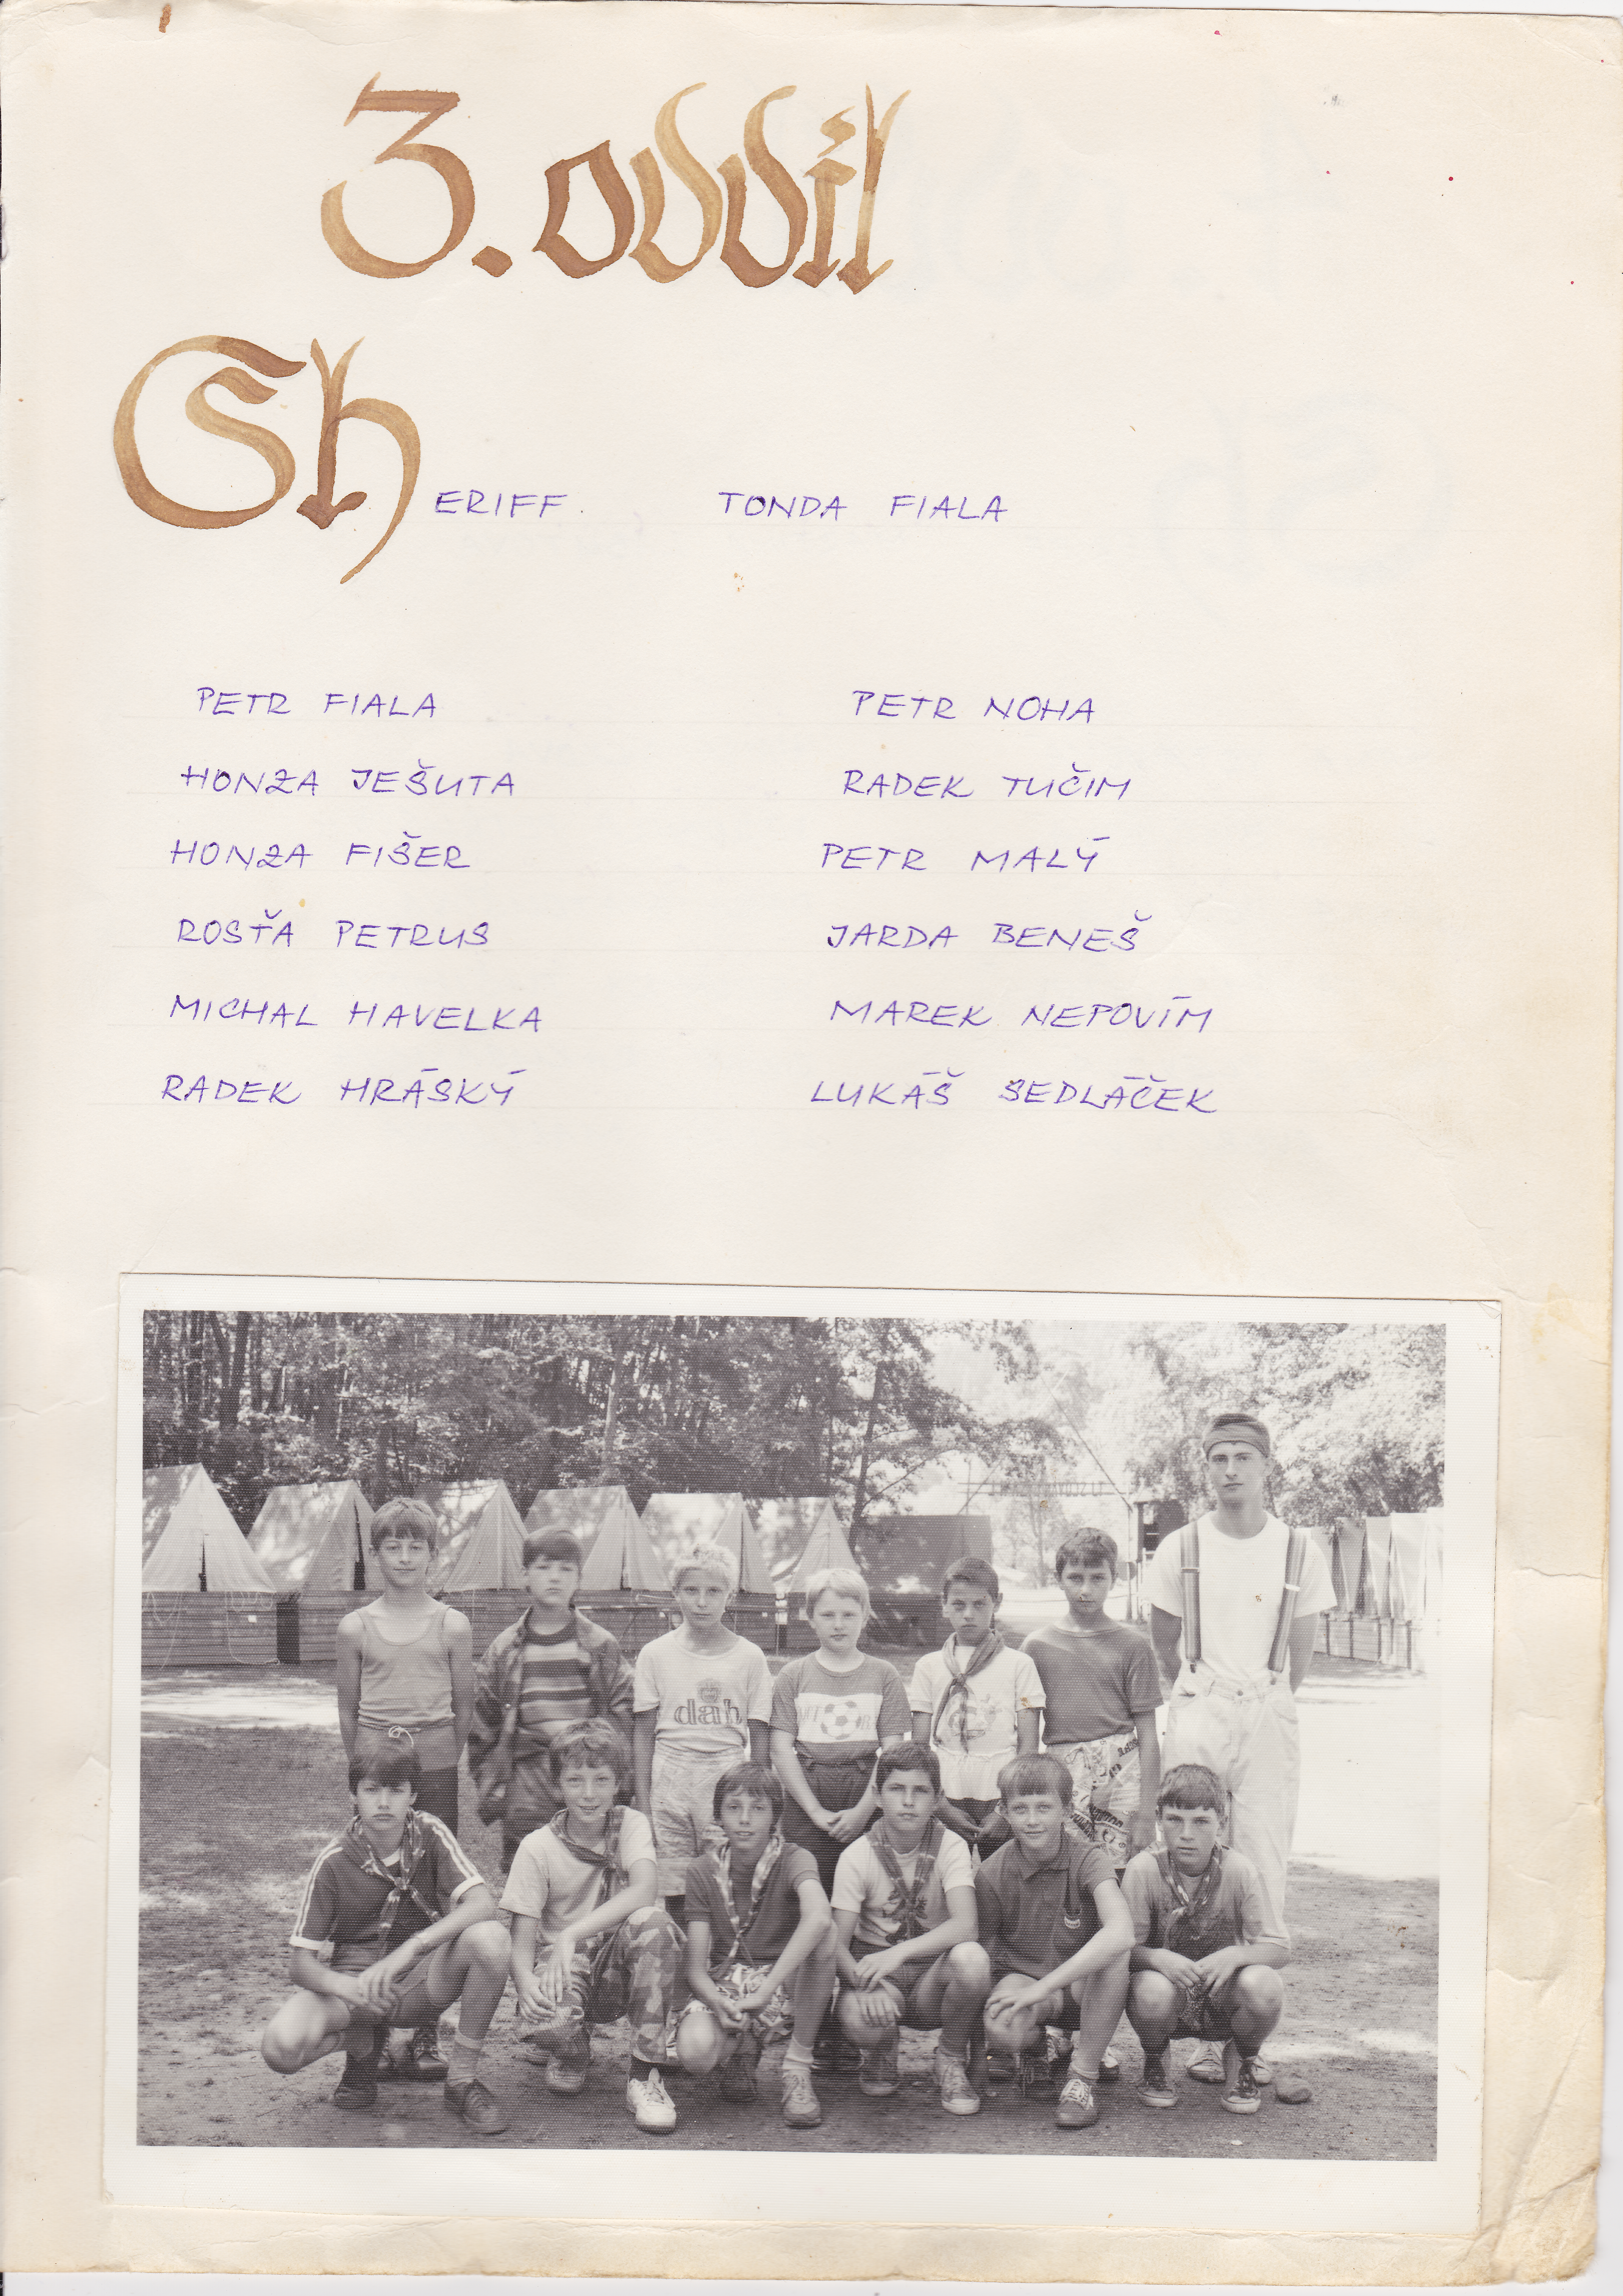 3. oddíl
Sheriff TONDA FIALA
PETR FIALA PETR NOHA
HONZA JEŠUTA RADEK TUČIM
HONZA FIŠER PETR MALÝ
ROSŤA PETRUS JARDA BENEŠ
MICHAL HAVELKA MAREK NEPOVÍM
RADEK HRÁSKÝ LUKÁŠ SEDLÁČEK
dah